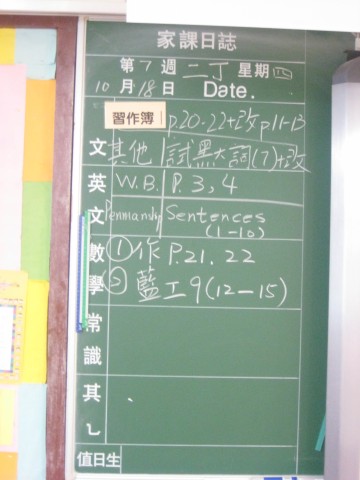 家課日誌
第7週 二丁 星期四
10月18日 Date.
習作簿 p.20-22+改 p11-13
文 其他 試黑大詞(7)+改
英 W.B. P.3,4
文 Penmanship Sentences
(1-10)
數 ① 作 P.21. 22
學 ② 藍工9(12-15)
常
識
其
值日生